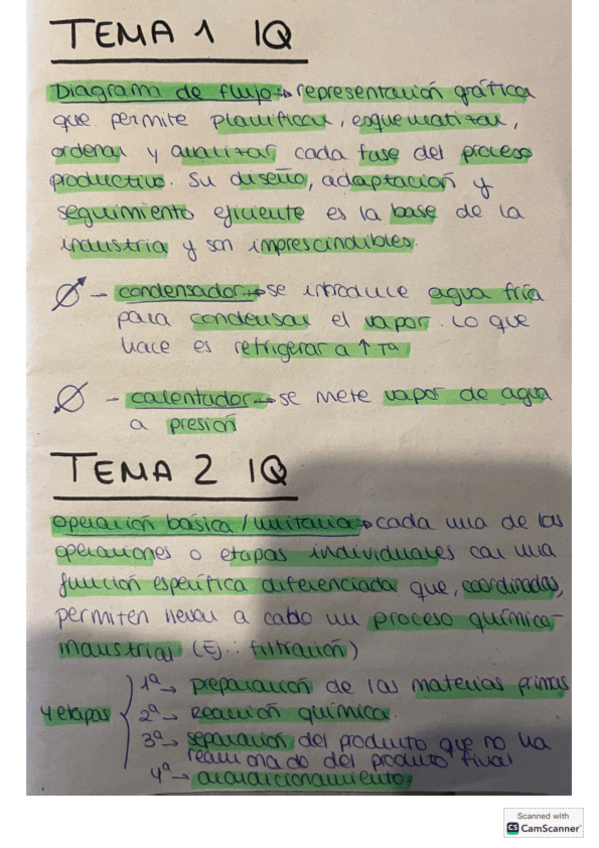 TEMA 1 IQ
Diagrama de flujo → representación gráfica
que permite planificar, esquematizar,
ordenar y analizar cada fase del proceso
productivo. Su diseño, adaptación y
seguimiento eficiente es la base de la
industria y son imprescindibles.
- condensador → se introduce agua fría
para condensar el vapor. Lo que
hace es refrigerar a ↑ Tª
- calentador → se mete vapor de agua
a presión
TEMA 2 IQ
operación básica/unitaria → cada una de las
operaciones o etapas individuales con una
función específica diferenciada que, coordinadas,
permiten llevar a cabo un proceso químico-
industrial (Ej.: filtración)
4 etapas
1ª → preparación de las materias primas
2ª → Reacción química.
3ª → separación del producto que no ha
reaccionado del producto final
4ª → acondicionamiento.
Scanned with
CS CamScanner